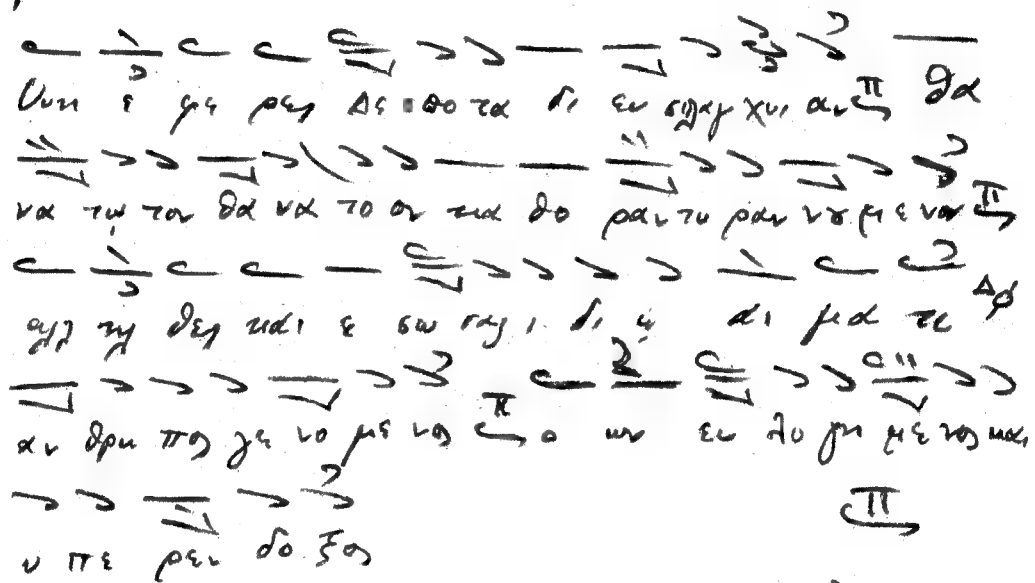 Ουκ ε φε ρες Δε σπο τα δι ευ σπλαγ χνι αν π θα
να τω τον θα να το ον κα θο ραν τυ ραν νου με νον π
αλλ ηλ θες και ε σω σας ι δι ω αι μα τι Δ
αν θρω πος γε νο με νος π ο ων ευ λο γη με νος και
υ πε ρεν δο ξος π